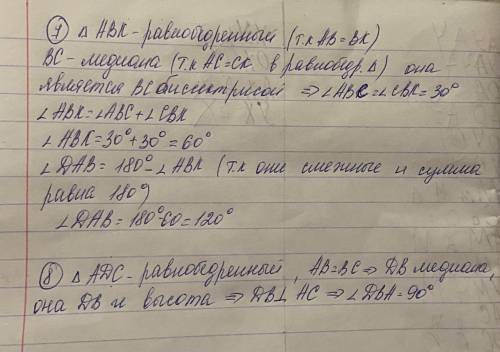 7) △ ABK - равнобедренный (т.к AB = BK)
BC - медиана (т.к AC = CK. в равнобедр. △) она
является BC биссектрисой ⇒ ∠ABC = ∠CBK = 30°
∠ABK = ∠ABC + ∠CBK
∠ABK = 30° + 30° = 60°
∠DAB = 180° - ∠ABK (т.к они смежные и сумма
равна 180°)
∠DAB = 180° - 60 = 120°
8) △ ADC - равнобедренный, AB = BC ⇒ DB медиана,
она DB и высота ⇒ DB ⊥ AC ⇒ ∠DBA = 90°